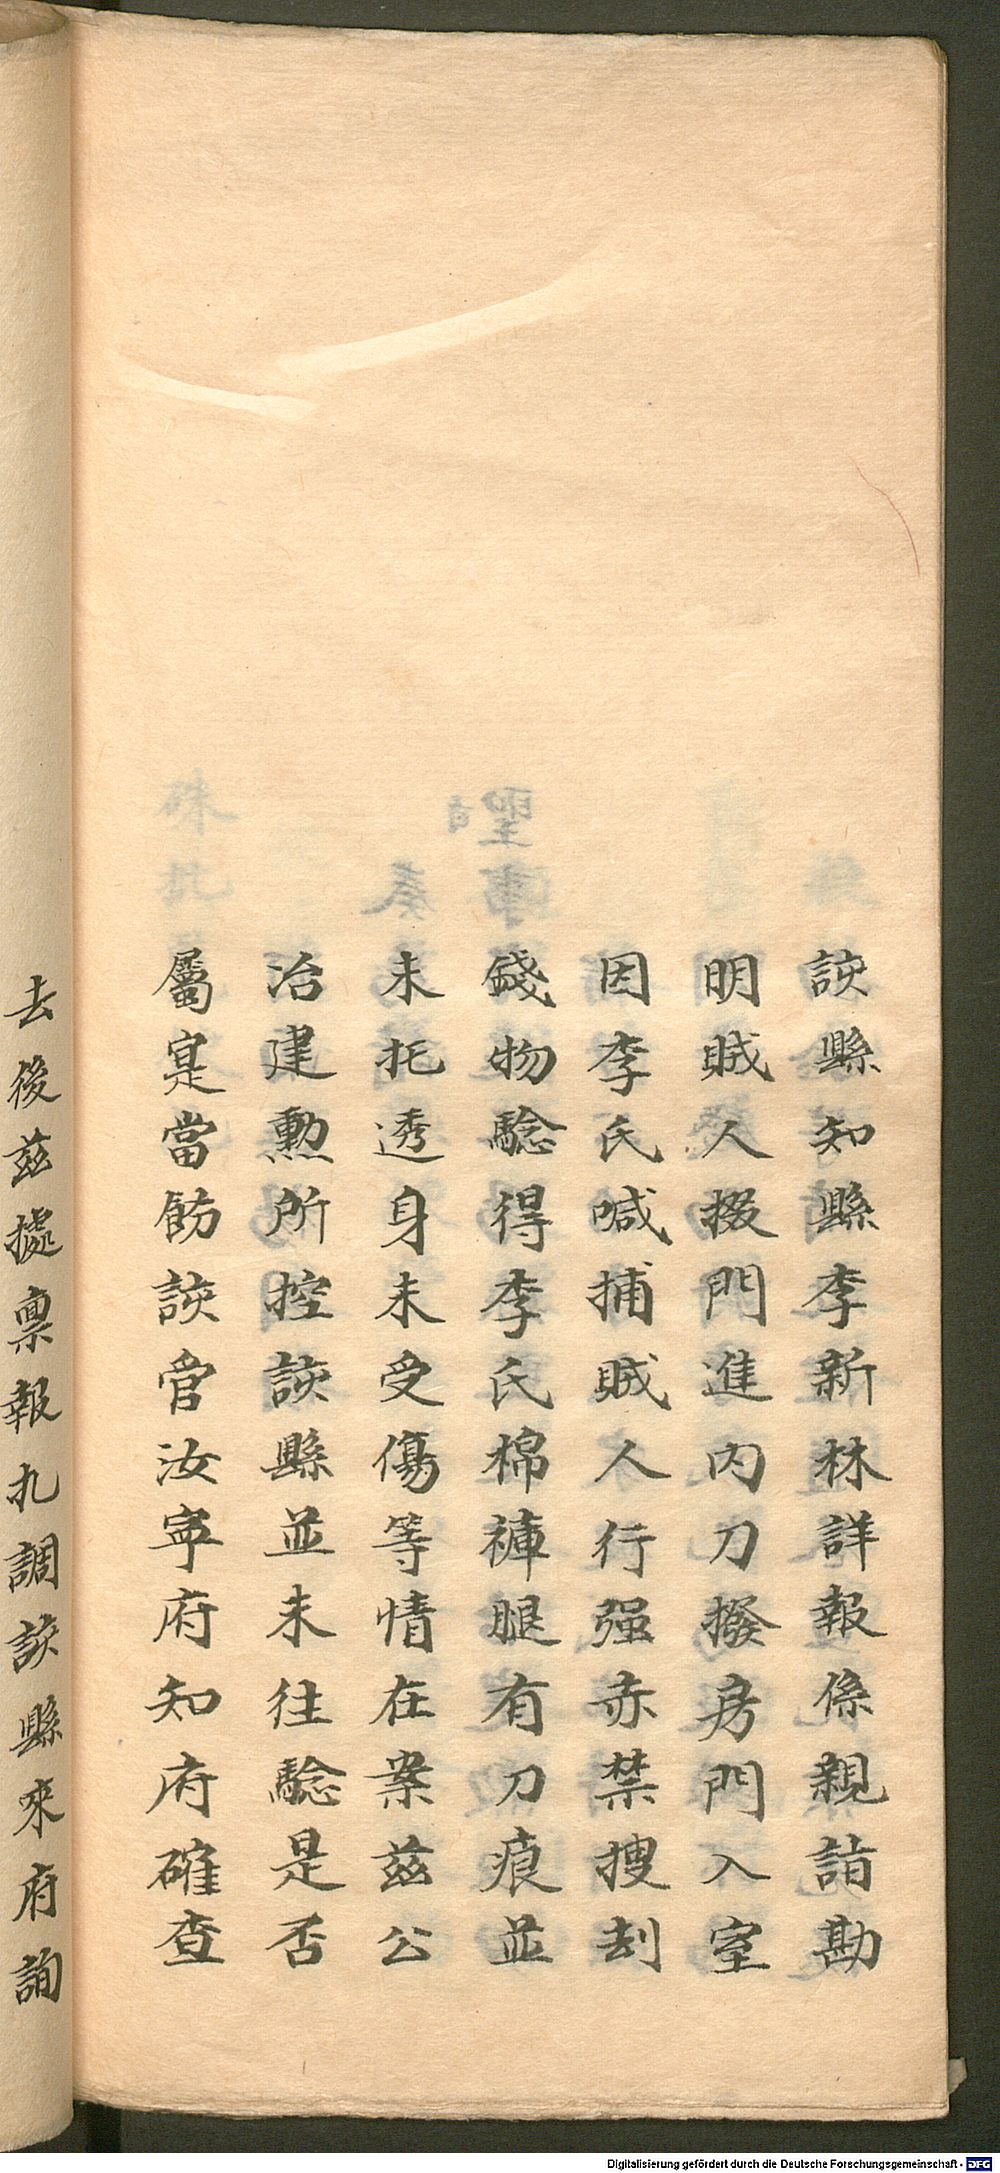 該縣知縣李新林詳報係親詣勘
明賊人掇門進內刀撥房門入室
因李氏喊捕賊人行强赤禁搜刮
錢物驗得李氏棉褲腿有刀痕並
未扎透身未受傷等情在案茲公
冶建勳所控該縣並未往驗是否
屬寔當飭該管汝寧府知府確查
去後茲據禀報扎調該縣來府詢
Digitalisierung gefördert durch die Deutsche Forschungsgemeinschaft - DFG